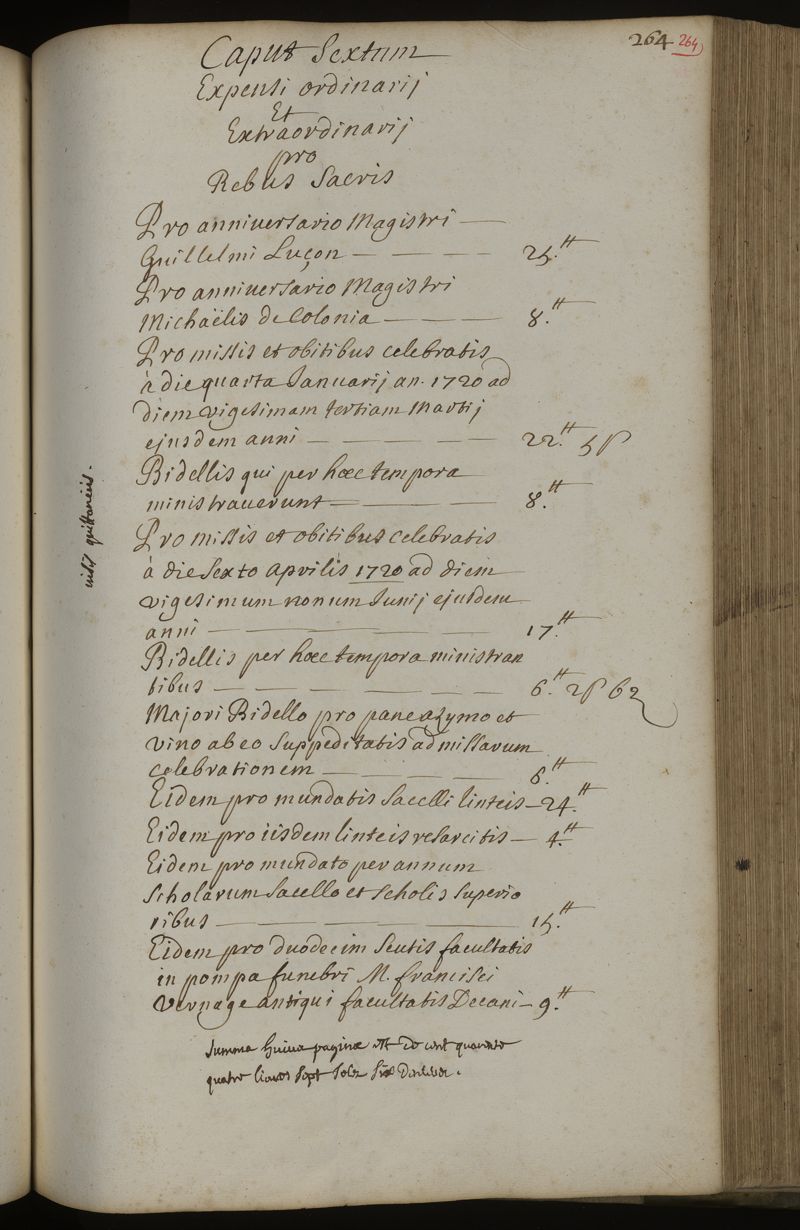 264 264
Caput Sextum
Expensi ordinarij
Et
Extraordinarij
pro
Rebus Sacris
Pro anniversario Magistri —
Guillelmi Luçon — — — — 25.ᵗᵗ
Pro anniversario Magistri
Michaëlis de Colonia — — — 8.ᵗᵗ
Pro missis et obitibus celebratis
à die quarta Januarij an. 1720 ad
diem vigesimam tertiam Martij
ejusdem anni — — — — 22.ᵗᵗ 5 ſ
Bidellis qui per hæc tempora
ministraverunt — — — 8.ᵗᵗ
Pro missis et obitibus celebratis
à die sexto Aprilis 1720 ad diem
vigesimum nonum Junij ejusdem
anni — — — — 17.ᵗᵗ
Bidellis per hæc tempora ministran
tibus — — — — — — 6.ᵗᵗ 2 ſ 6 ₰
Majori Bidello pro pane azymo et
vino ab eo suppeditatis ad missarum
celebrationem — — — — 6.ᵗᵗ
Eidem pro mundatis sacelli linteis — 24.ᵗᵗ
Eidem pro iisdem linteis resarcitis — 4.ᵗᵗ
Eidem pro mundato per annum
Scholarum Sacello et Scholis superio
ribus — — — — 15.ᵗᵗ
Eidem pro duodecim scutis facultatis
in pompa funebri M. francisci
Vernage antiqui facultatis Decani — 9.ᵗᵗ
Summa huius paginæ est de cent quarante
quatre livres sept sols six deniers.
quittanciis.